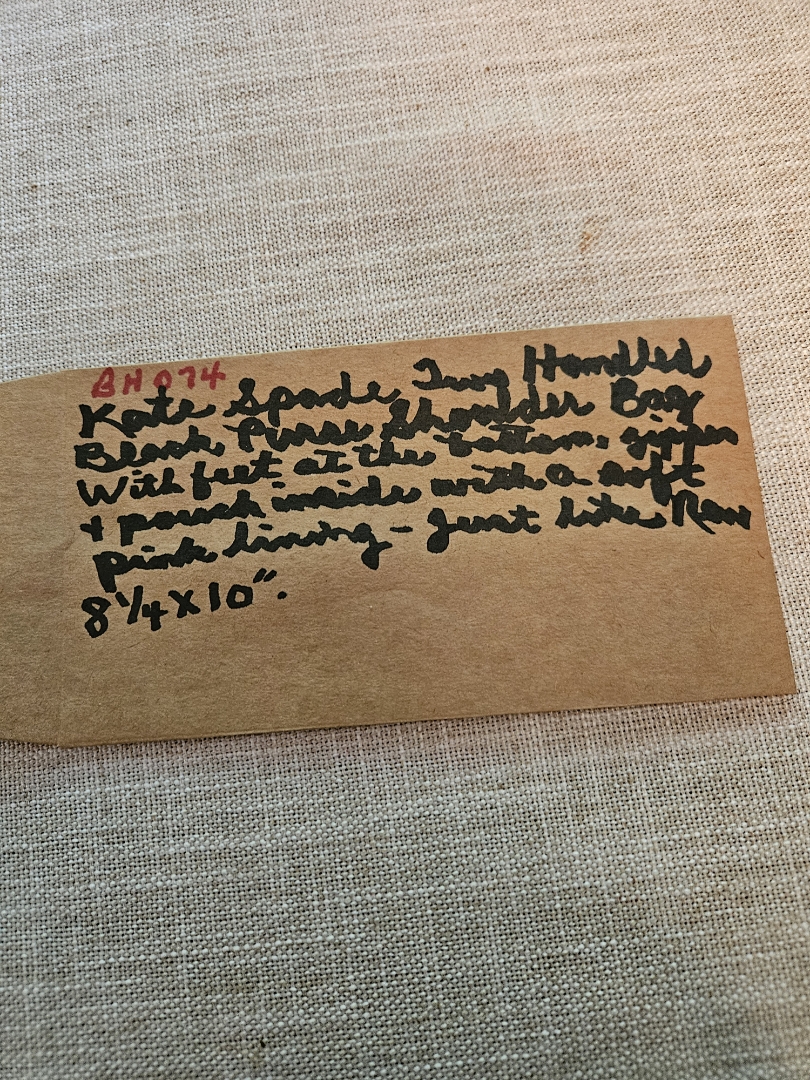 BH074
Kate Spade Two Handled
Black Purse Shoulder Bag
With feet at the bottom, zipper
+ pouch inside with a soft
pink lining - Just like New
8 1/4 X 10".